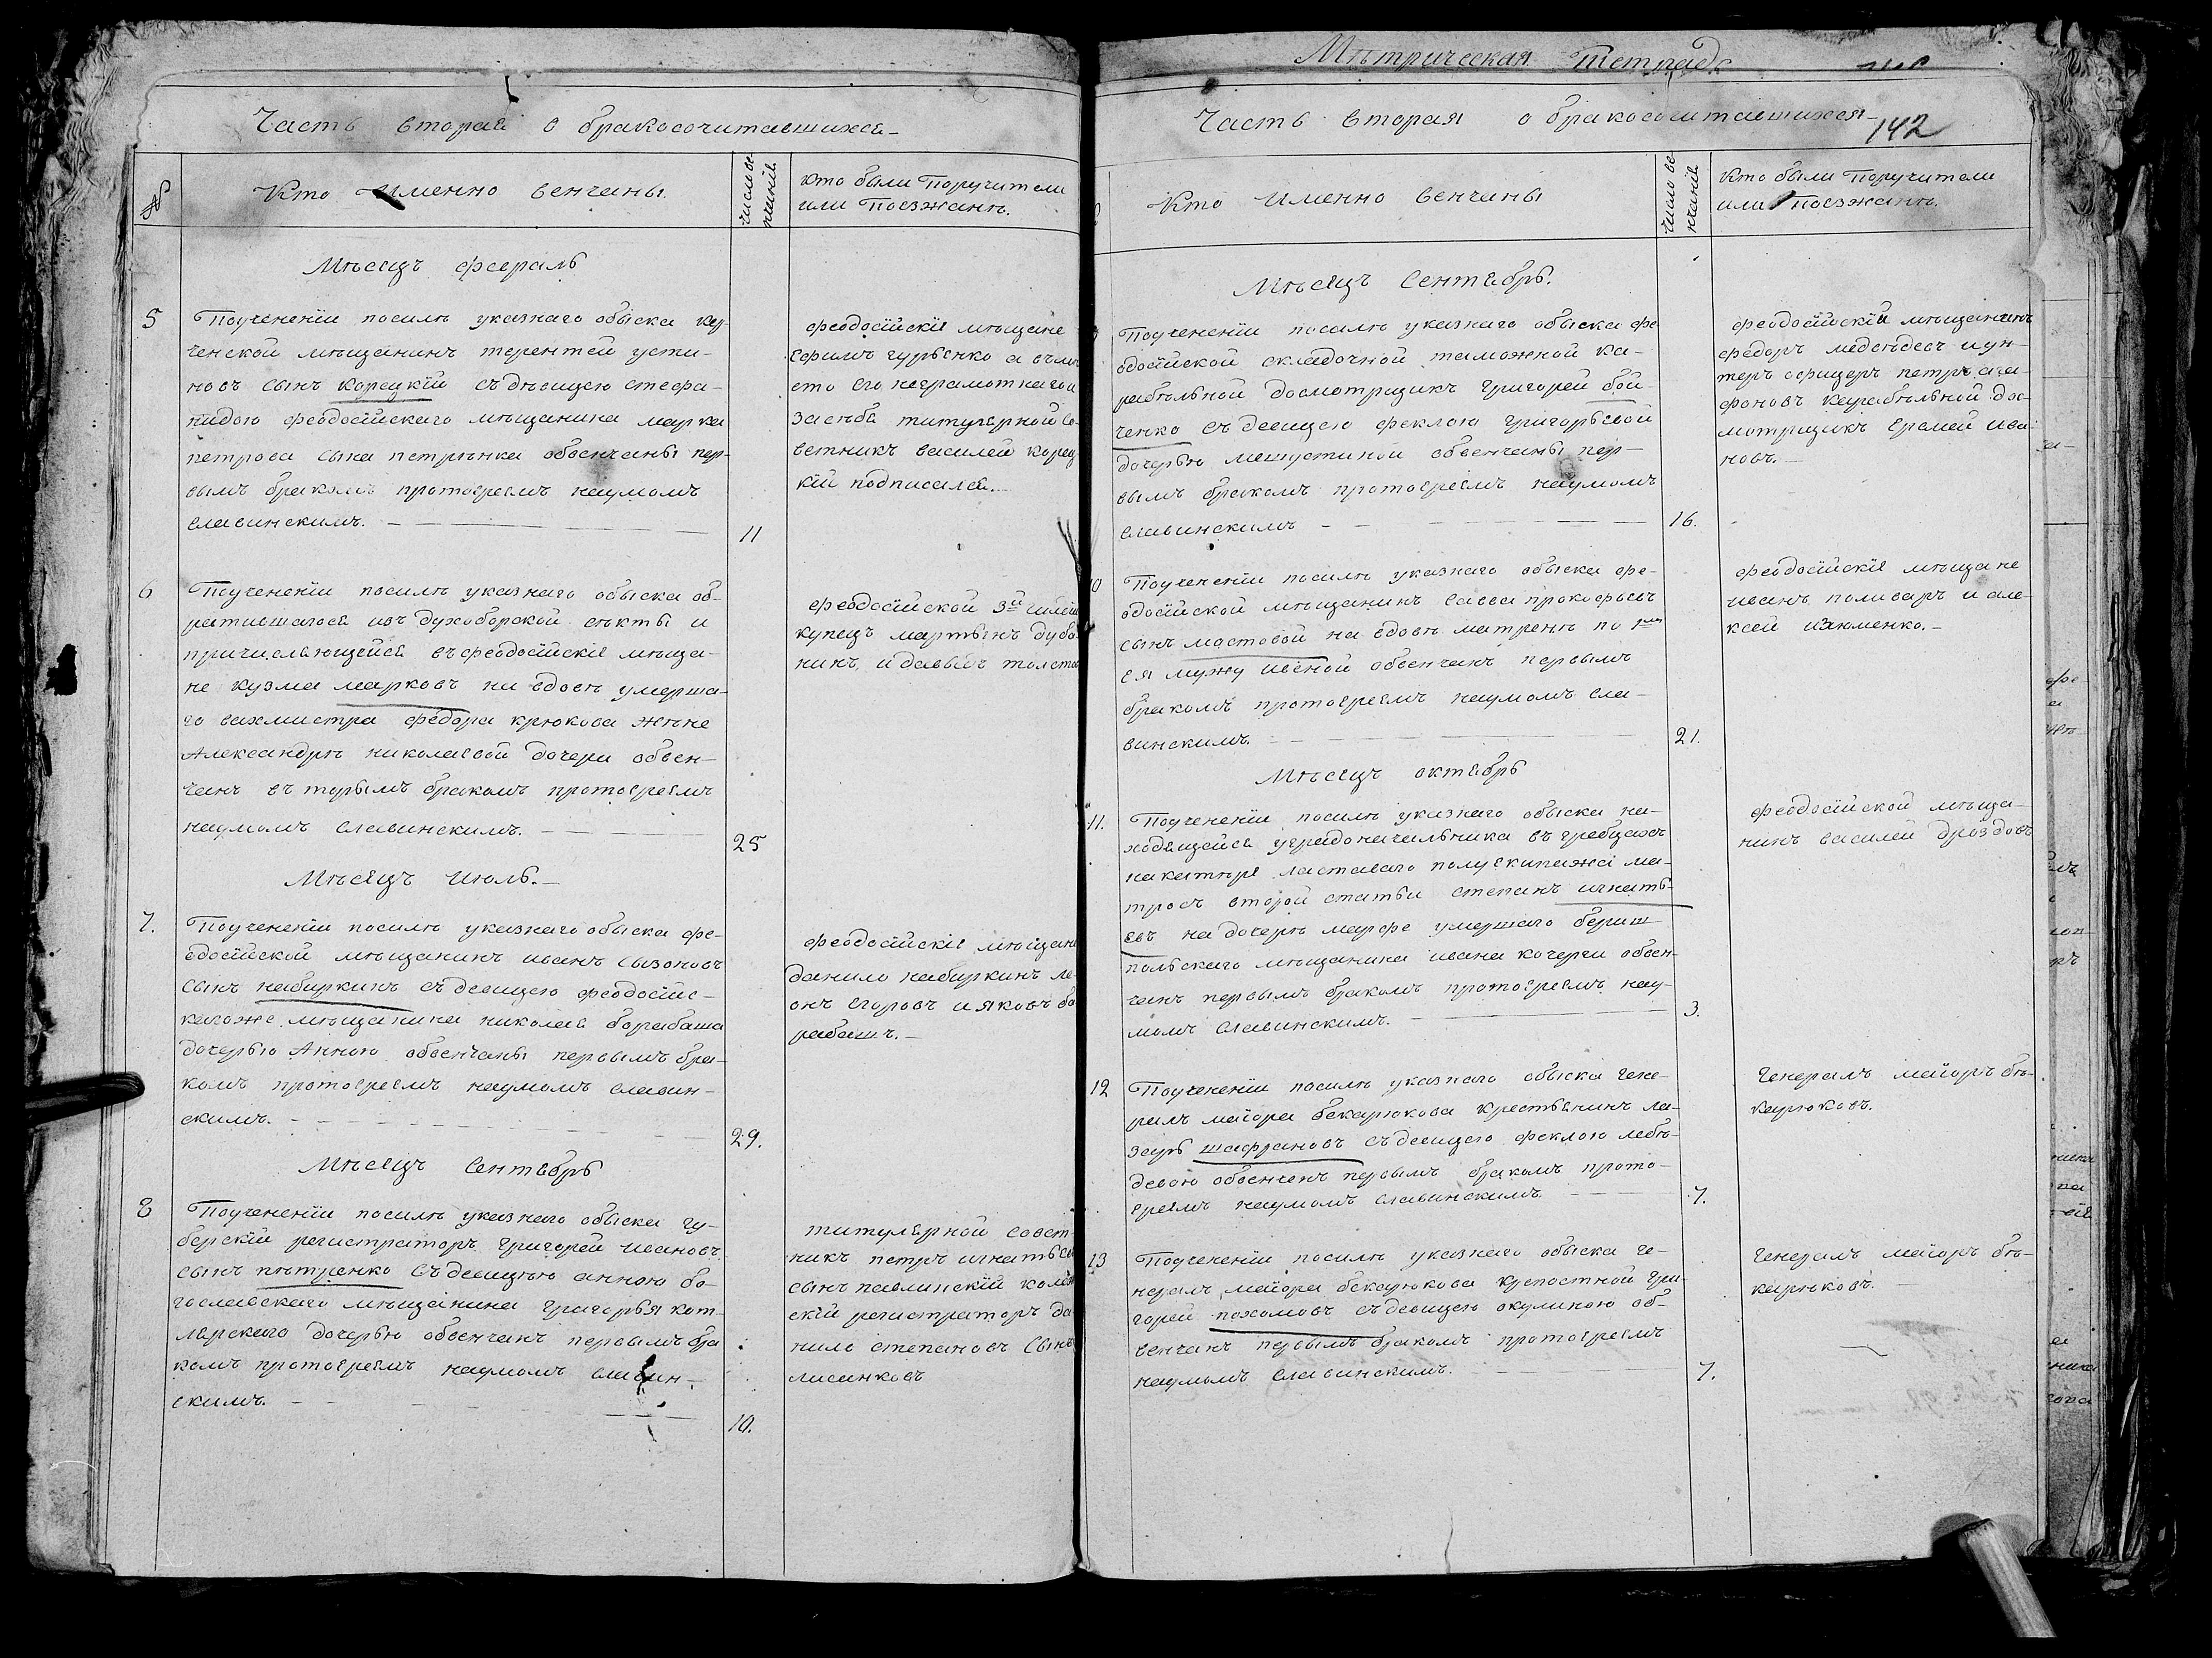 Часть вторая о бракосочитавшихся
№
Кто именно венчаны
число ве-
нчанiй
кто были Поручители
или Поезжанѣ.
Мѣсяцъ февраль
5
Поучененiи посилѣ указнаго обыска ку-
ченской мѣщанинъ терентей усти-
новъ сынъ корецкiй съ дѣвицею стефа-
нидою феодосiйскаго мѣщанина марка
петрова сына петрѣнка обвенчаны пер-
вымъ бракомъ протоереемъ наумомъ
славинскимъ.
11
феодосiйскiе мѣщане
ефимъ гурѣенко а въмѣ
сто его неграмотнаго и
засебя титулярной со-
ветникъ василей корец
кiй подписался.
6
Поучененiи посилѣ указнаго обыска об-
ратившагося изъ духоборской сѣкты и
причисляющейся въ феодосiйскiе мѣща-
не кузма марковъ на вдовѣ умерша-
го вахмистра федора крюкова жѣне
Александрѣ николаевой дочери обвен-
чанъ въторымъ бракомъ протоереемъ
наумомъ славинскимъ.
25
феодосiйской 3й гилдiи
купецъ мартынъ дубо
нинъ и давыдъ толсто
Мѣсяцъ июль.
7.
Поучененiи посилѣ указнаго обыска фе-
одосiйской мѣщанинъ иванъ сызоновъ
сынъ набиркинъ съ девицею феодосiйс-
кагоже мѣщанина николая барабаша
дочерью Анною обвенчаны первымъ бра-
комъ протоереемъ наумомъ славин-
скимъ.
29.
феодосiйскiе мѣщане
данило набиркинъ ле-
онъ егоровъ и яковъ ба
рабашъ.
Мѣсяцъ Сентябрь
8
Поучененiи посилѣ указнаго обыска гу-
бернскiй регистраторъ григорей ивановъ
сынъ пѣтренко съ девицѣю анною бо-
гославскаго мѣщанина григорья кот-
лярскаго дочерью обвенчанъ первымъ бра
комъ протоереемъ наумомъ славин-
скимъ.
10.
титулярной совет
никъ петръ игнатьев
сынъ павлинскiй колѣж
скiй регистраторъ да
нило степановъ сынъ
лисинковъ
Мѣтрическая Тетрадь
Часть вторая о бракосочитавшихся
142
Кто именно венчаны
число ве-
нчанiй
кто были Поручители
или Поезжанѣ.
Мѣсяцъ Сентябрь.
Поучененiи посилѣ указнаго обыска фе
одосiйской складочной таможной ка-
рабѣльной досмотрщикъ григорей бой-
ченко съ девицею феклою григорьевой
дочерью мешустиной обвенчаны пер-
вымъ бракомъ протоереемъ наумомъ
славинскимъ
16.
феодосiйскiй мѣщанинъ
федоръ медведевъ и ун-
теръ офицеръ петръ ага
фоновъ карабѣльной дос-
мотрщикъ еремей ива-
новъ.
10
Поучененiи посилѣ указнаго обыска фе-
одосiйской мѣщанинъ савва прокофьевъ
сынъ мостовой на вдовѣ матренѣ по 1му
ея мужу ивсной обвенчанъ первымъ
бракомъ протоереемъ наумомъ сла-
винскимъ.
21.
феодосiйскiе мѣщане
иванъ поливаръ и але-
ксей изюменко.
Мѣсяцъ октябрь
11.
Поучененiи посилѣ указнаго обыска на-
ходящейся уградоначальника въ гребцахъ
накатѣре ластаваго полуекипажа ма-
тросъ второй статьи степанъ игнать-
евъ на дочерѣ марфе умершаго бериш
польскаго мѣщанина ивана кочерги обвен-
чанъ первымъ бракомъ протоереемъ нау-
момъ славинскимъ.
3.
феодосiйской мѣща-
нинъ василей дроздовъ
12
Поучененiи посилѣ указнаго обыска гене-
ралъ маiора бекарюкова крестьянинъ ла-
зарь шафрановъ съ девицею феклою лебѣ-
девою обвенчанъ первымъ бракомъ прото-
ереемъ наумомъ славинскимъ
7.
генералъ маiоръ бѣ-
карюковъ.
13
Поучененiи посилѣ указнаго обыска ге-
нералъ маiора бекарюкова крепостной гри
горей похомовъ съ девицею окулиною об-
венчанъ первымъ бракомъ протоереемъ
наумомъ славинскимъ.
7.
генералъ маiоръ бѣ-
карюковъ.